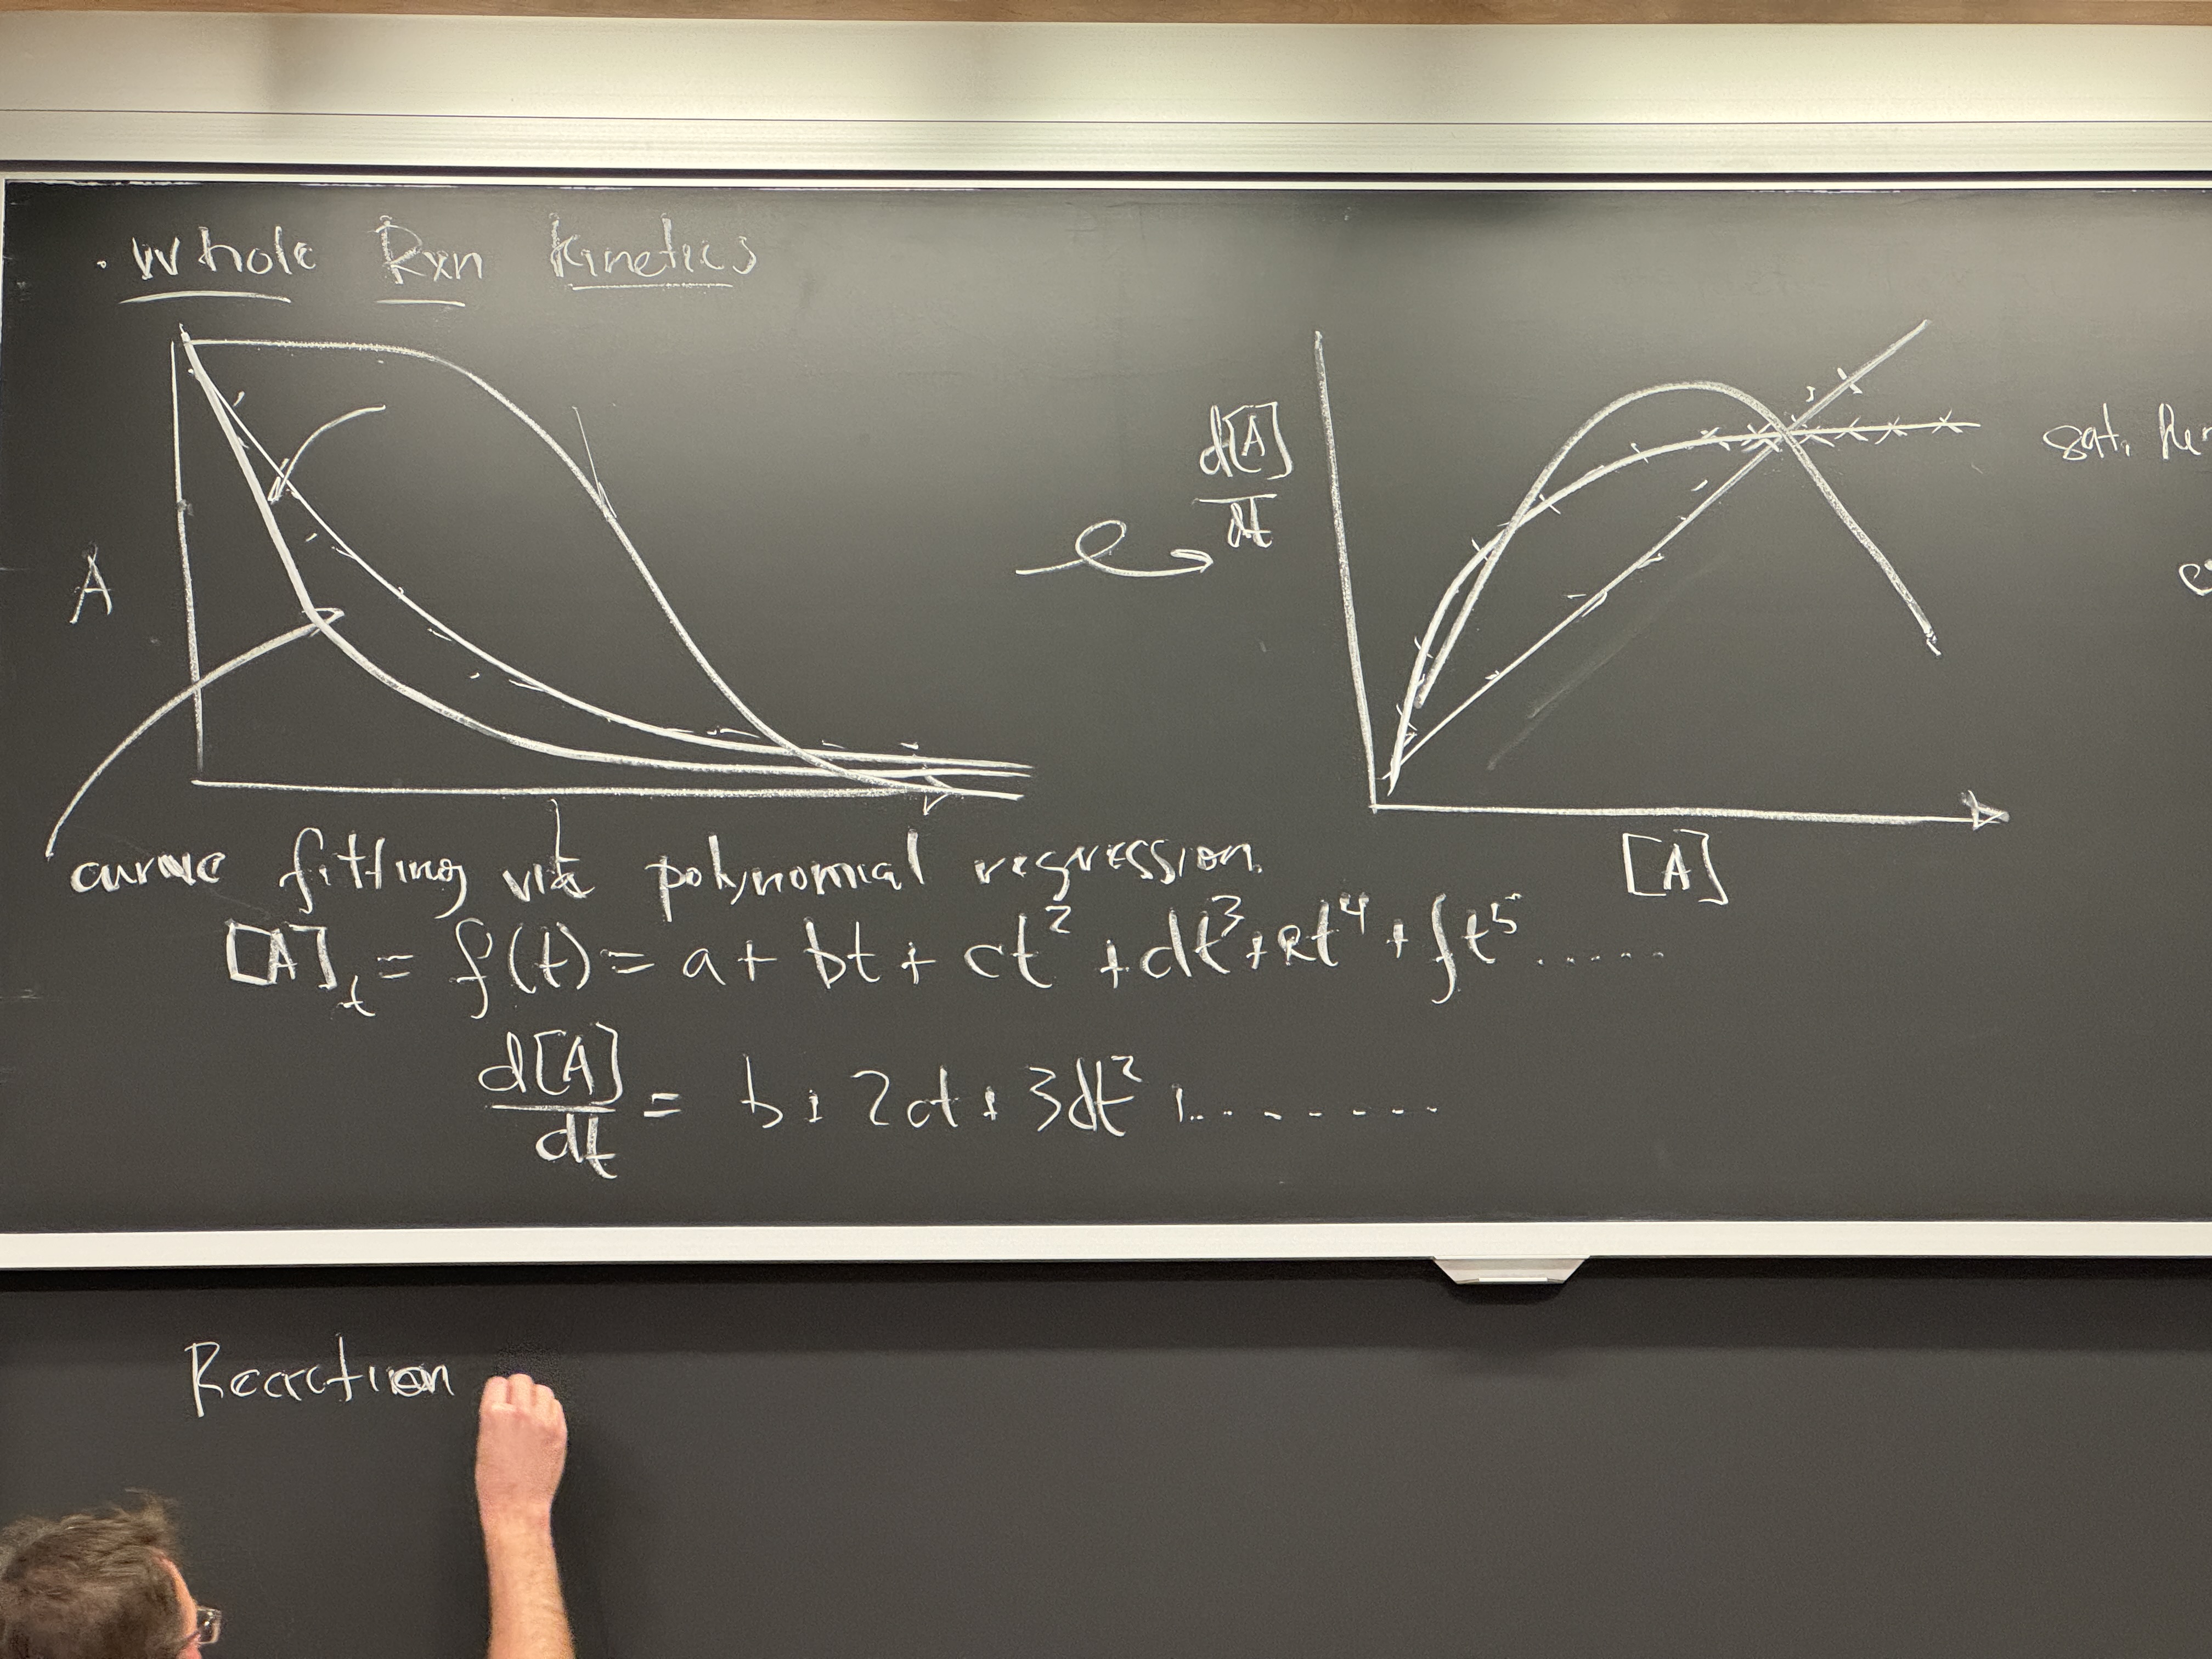 . Whole Rxn Kinetics
A
d[A]
dt
sat.
[A]
curve fitting via polynomial regression.
[A]t = f(t) = a + bt + ct² + dt³ + et⁴ + ft⁵ .....
d[A]
dt
= b + 2ct + 3dt² + .......
Reaction